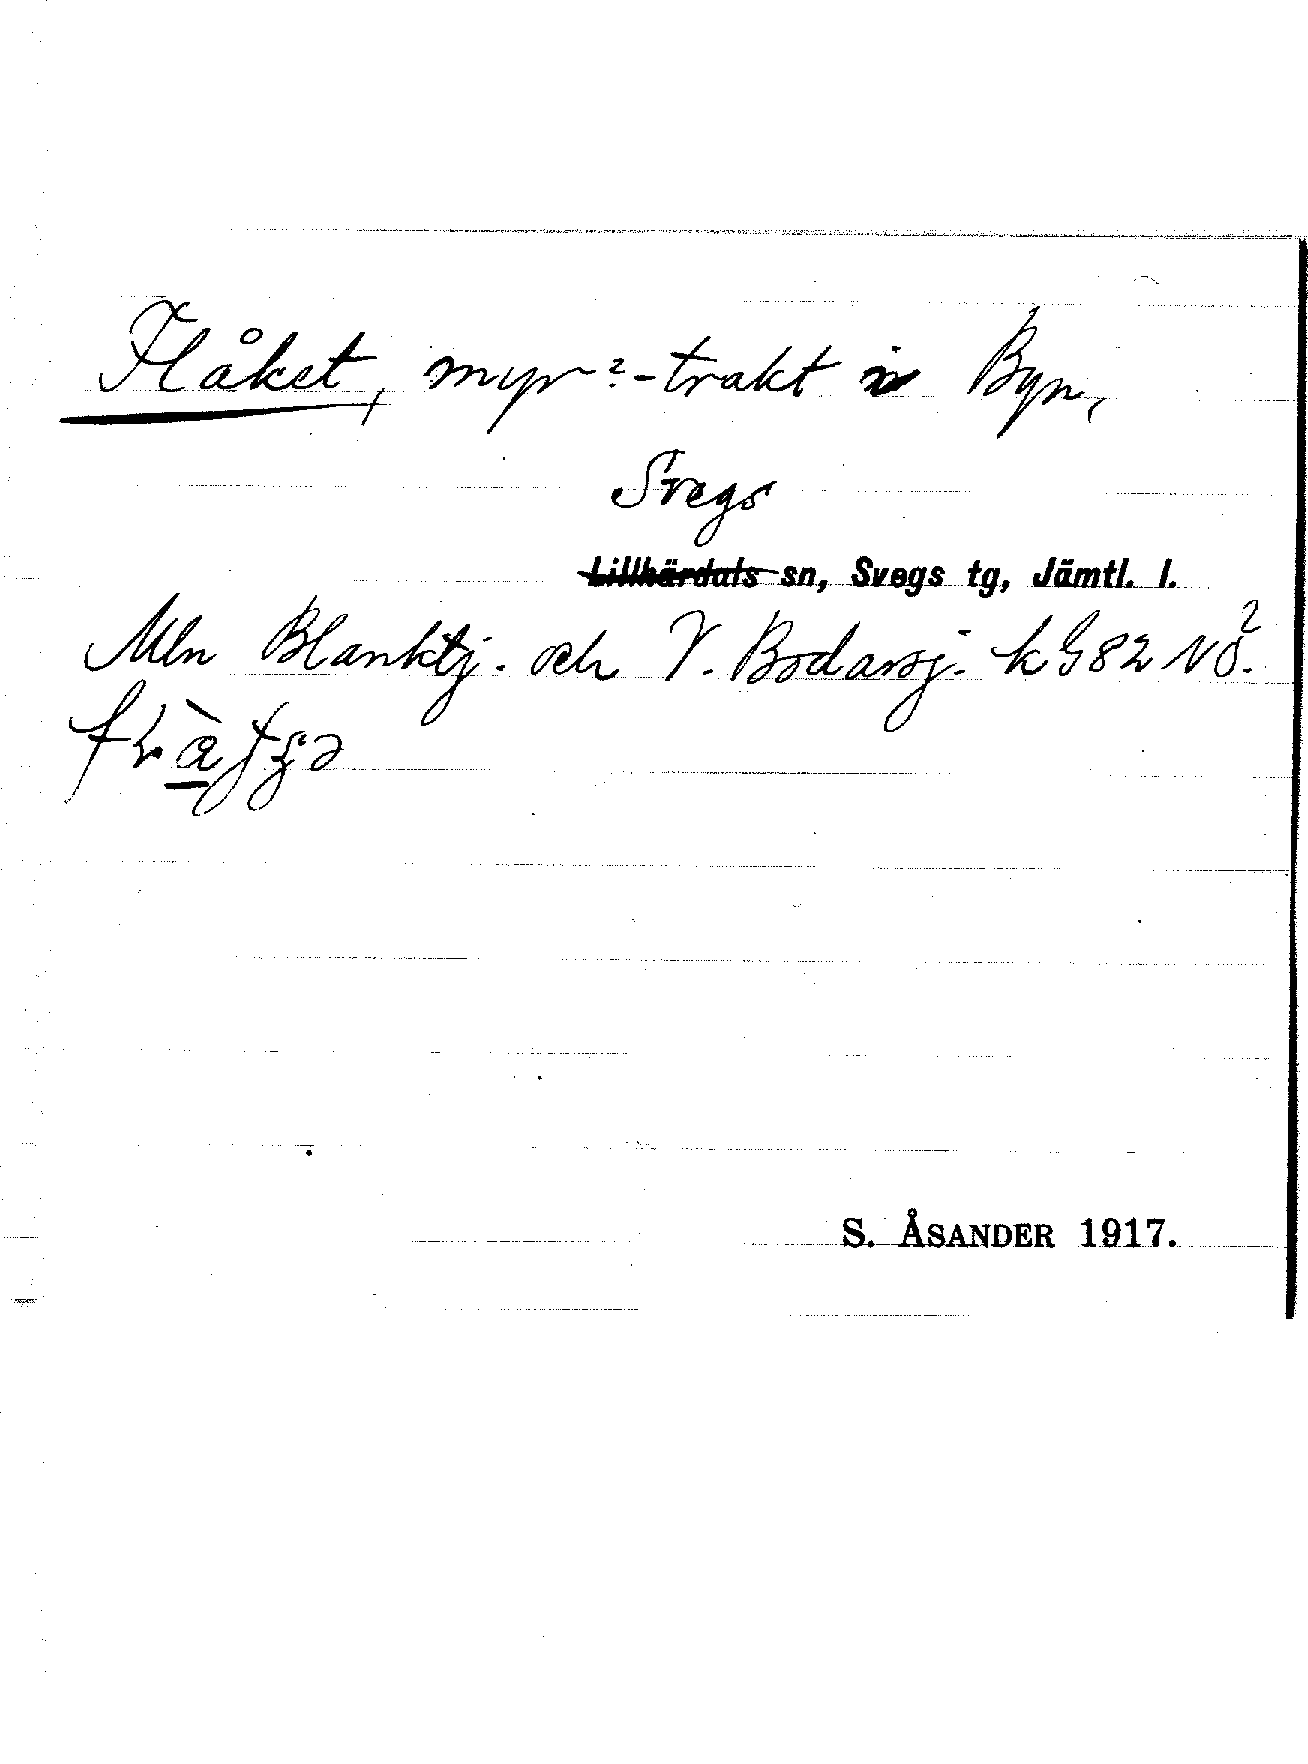 Flåket, myr?-trakt i Byn,
Svegs
Lillhärdals sn, Svegs tg, Jämtl. l.
Mln Blanktj. och V. Bodarsj. k G 82 NÖ?.
S. ÅSANDER 1917.